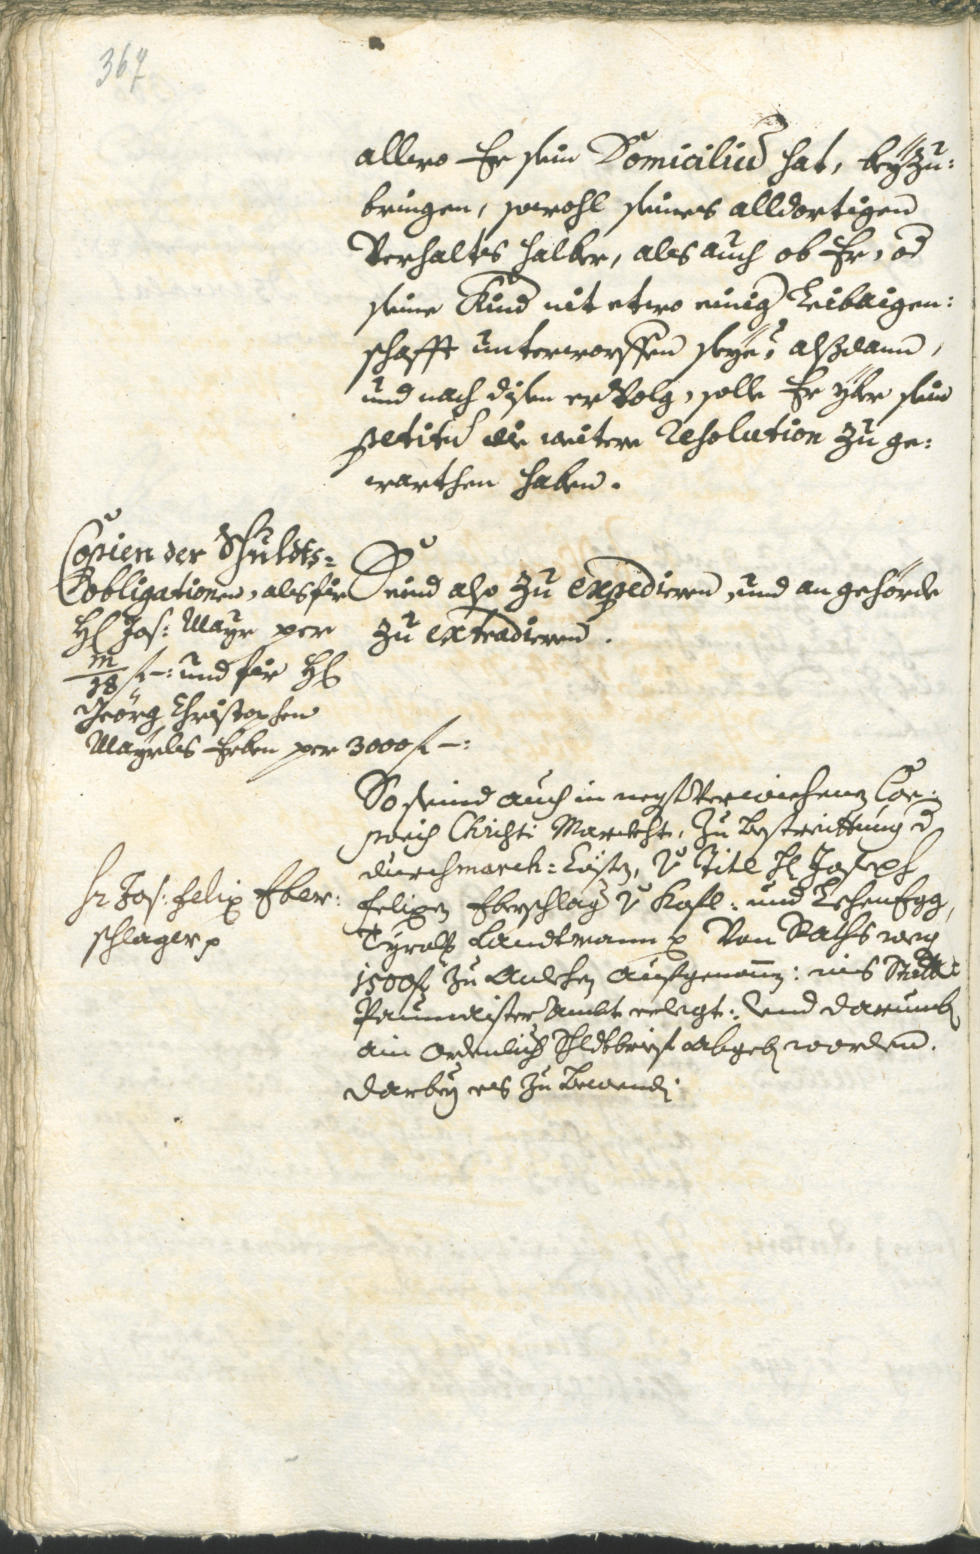 367
allwo Er sein Domicilium hat, beÿzu:
bringen, sowohl seines alldortigen
Verhaltes halber, als auch ob Er, od
seine Kind nit etwo einig Leibaigen:
schafft unterworffen seye, alßdann,
und nach disen ervolg, solle Er yber sein
petitum die weitere Resolution zu ge:
warthen haben.
Copien der Schuldts=
obligationen, als für
H Jos: Mayr per
m/18 f –: und für H
Georg Christophen
Mayrls Erben per 3000 f –:
Seind also zu expedieren, und an gehörde
zu extradieren.
So seind auch in negst verwichenen Cor:
poris Christi Marckht, zu bestreittung d
durchmarch: Cösten, v Titl H Joseph
Felixen Eberschlag v Kofl: und Lehenegg,
Tyrolls Landtmann p Von Raths weg
1500 f zu Anlehen aufgenommen: ins Statt
Paumaister Ambt erlegt: und darumb
ain ordenlich Schldtbrief abgeben worden.
darbey es zu bewendn.
Hr Jos: Felix Eber:
schlager p